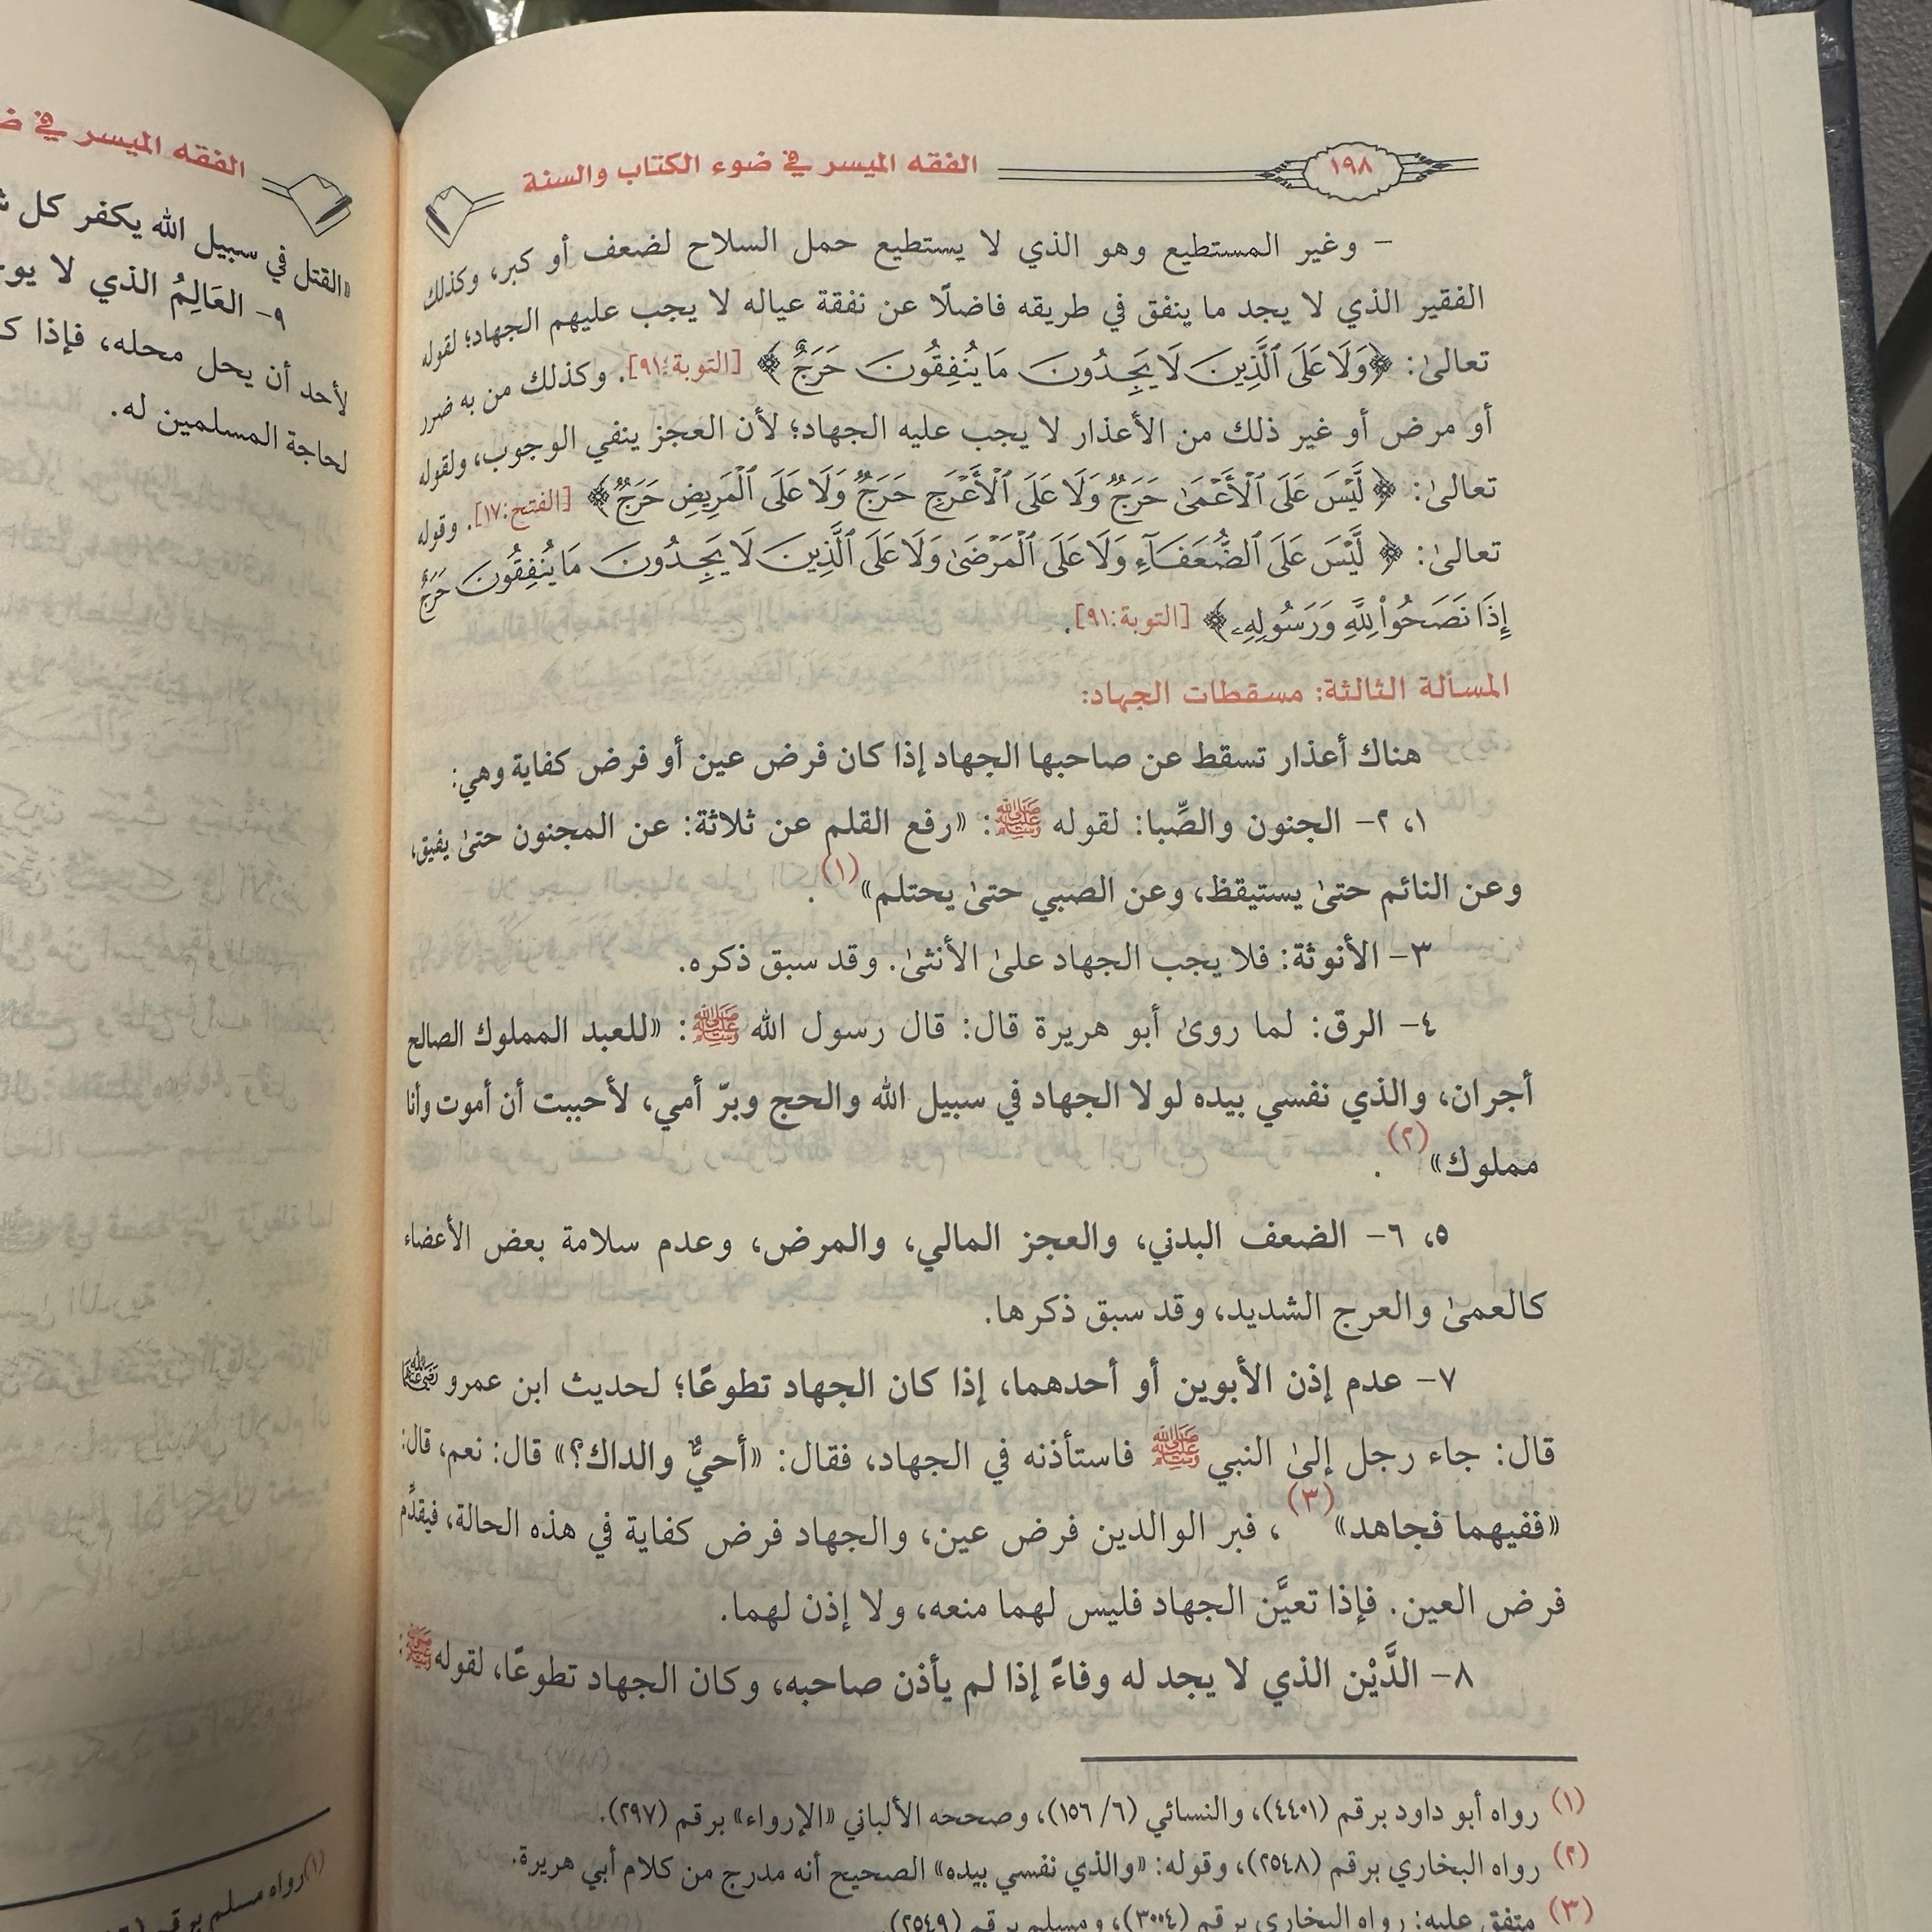 ١٩٨ الفقه الميسر في ضوء الكتاب والسنة
– وغير المستطيع وهو الذي لا يستطيع حمل السلاح لضعف أو كبر، وكذلك
الفقير الذي لا يجد ما ينفق في طريقه فاضلًا عن نفقة عياله لا يجب عليهم الجهاد؛ لقوله
تعالىٰ: ﴿وَلَا عَلَى ٱلَّذِينَ لَا يَجِدُونَ مَا يُنفِقُونَ حَرَجٌ﴾ [التوبة:٩١]. وكذلك من به ضرر
أو مرض أو غير ذلك من الأعذار لا يجب عليه الجهاد؛ لأن العجز ينفي الوجوب، ولقوله
تعالىٰ: ﴿لَّيْسَ عَلَى ٱلْأَعْمَىٰ حَرَجٌ وَلَا عَلَى ٱلْأَعْرَجِ حَرَجٌ وَلَا عَلَى ٱلْمَرِيضِ حَرَجٌ﴾ [الفتح:١٧]. وقوله
تعالىٰ: ﴿لَّيْسَ عَلَى ٱلضُّعَفَآءِ وَلَا عَلَى ٱلْمَرْضَىٰ وَلَا عَلَى ٱلَّذِينَ لَا يَجِدُونَ مَا يُنفِقُونَ حَرَجٌ
إِذَا نَصَحُوا۟ لِلَّهِ وَرَسُولِهِۦ﴾ [التوبة:٩١].
المسألة الثالثة: مسقطات الجهاد:
هناك أعذار تسقط عن صاحبها الجهاد إذا كان فرض عين أو فرض كفاية وهي:
١، ٢– الجنون والصِّبا: لقوله ﷺ: «رفع القلم عن ثلاثة: عن المجنون حتىٰ يفيق،
وعن النائم حتىٰ يستيقظ، وعن الصبي حتىٰ يحتلم»(١).
٣– الأنوثة: فلا يجب الجهاد علىٰ الأنثىٰ. وقد سبق ذكره.
٤– الرق: لما روىٰ أبو هريرة قال: قال رسول الله ﷺ: «للعبد المملوك الصالح
أجران، والذي نفسي بيده لولا الجهاد في سبيل الله والحج وبرّ أمي، لأحببت أن أموت وأنا
مملوك»(٢).
٥، ٦– الضعف البدني، والعجز المالي، والمرض، وعدم سلامة بعض الأعضاء
كالعمىٰ والعرج الشديد، وقد سبق ذكرها.
٧– عدم إذن الأبوين أو أحدهما، إذا كان الجهاد تطوعًا؛ لحديث ابن عمرو رضي الله عنهما
قال: جاء رجل إلىٰ النبي ﷺ فاستأذنه في الجهاد، فقال: «أحيٌّ والداك؟» قال: نعم، قال:
«ففيهما فجاهد»(٣)، فبر الوالدين فرض عين، والجهاد فرض كفاية في هذه الحالة، فيقدَّم
فرض العين. فإذا تعيَّن الجهاد فليس لهما منعه، ولا إذن لهما.
٨– الدَّيْن الذي لا يجد له وفاءً إذا لم يأذن صاحبه، وكان الجهاد تطوعًا، لقوله ﷺ:
(١) رواه أبو داود برقم (٤٤٠١)، والنسائي (٦/ ١٥٦)، وصححه الألباني «الإرواء» برقم (٢٩٧).
(٢) رواه البخاري برقم (٢٥٤٨)، وقوله: «والذي نفسي بيده» الصحيح أنه مدرج من كلام أبي هريرة.
(٣) متفق عليه: رواه البخاري برقم (٣٠٠٤)، ومسلم برقم (٢٥٤٩).
الفقه الميسر في
«القتل في سبيل الله يكفر كل
٩– العَالِمُ الذي لا
لأحد أن يحل محله، فإذا
لحاجة المسلمين له.
(١) رواه مسلم برقم